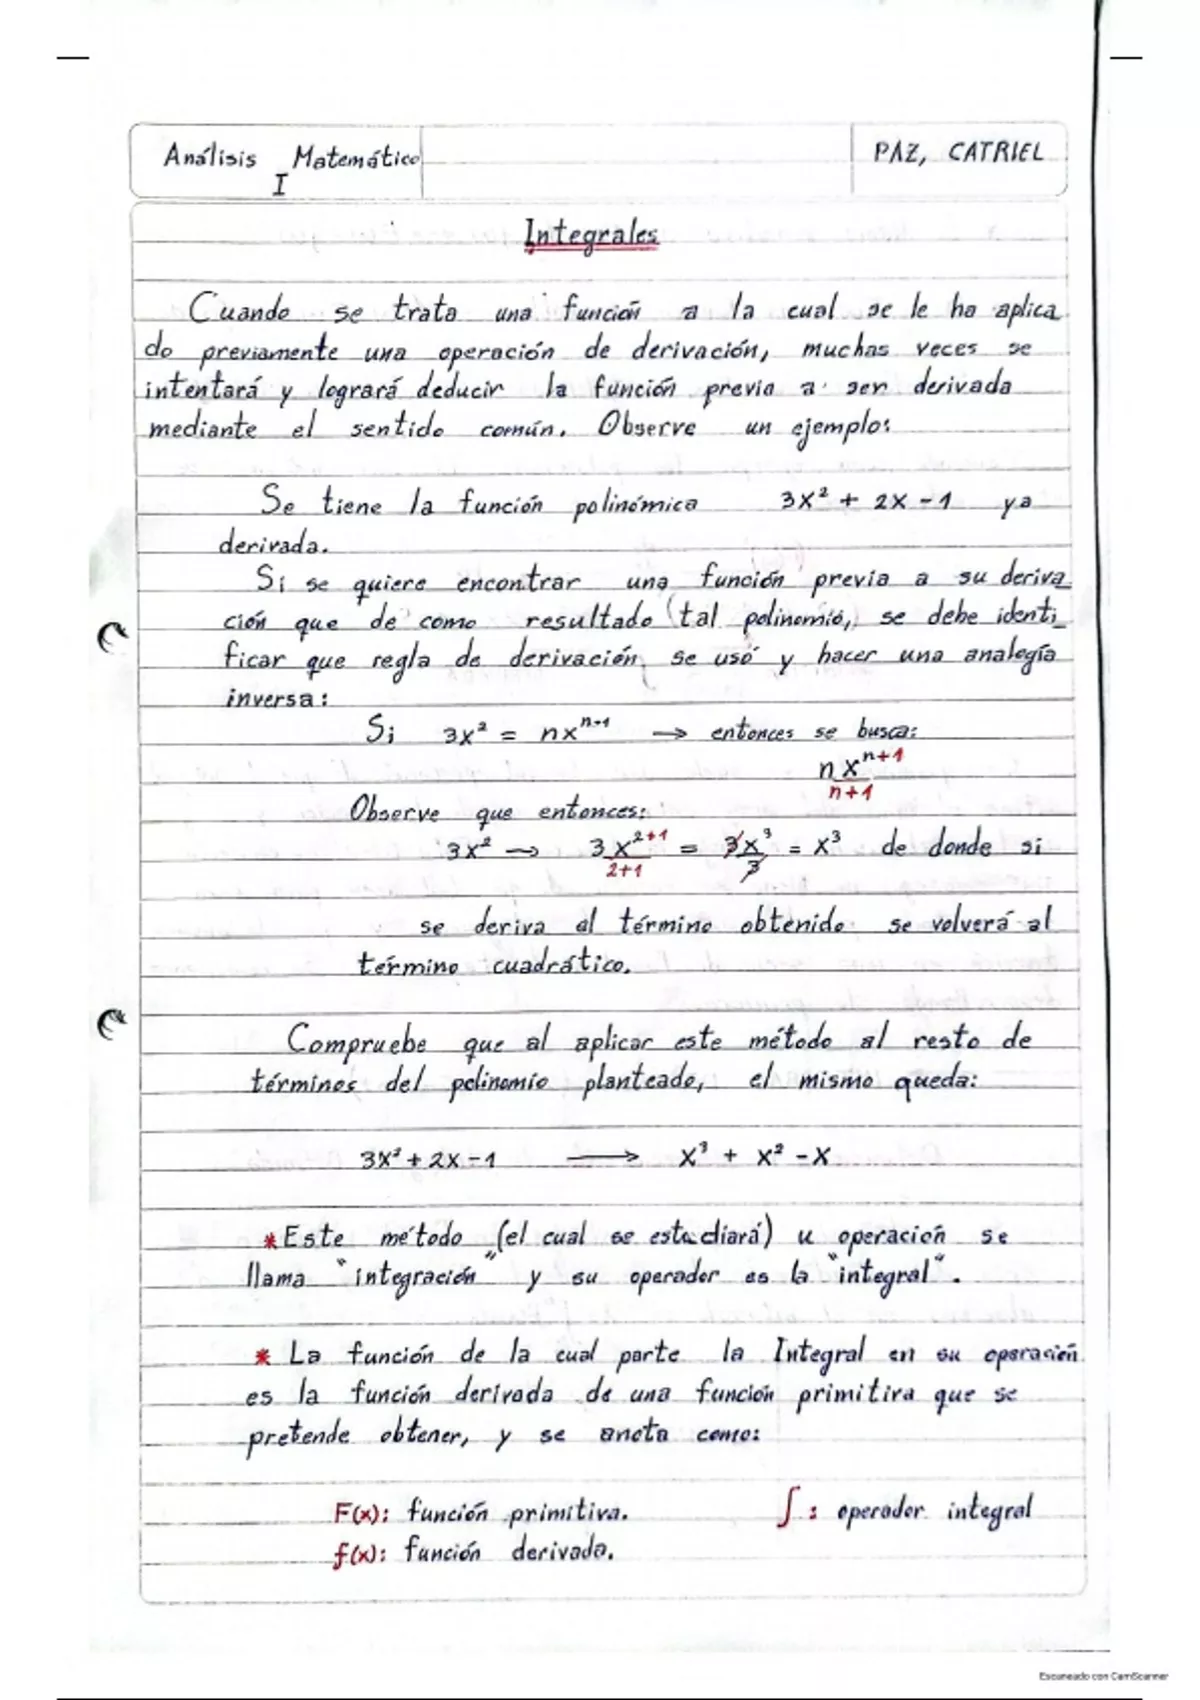 Análisis Matemático I
PAZ, CATRIEL
Integrales
Cuando se trata una función a la cual se le ha aplica
do previamente una operación de derivación, muchas veces se
intentará y logrará deducir la función previa a ser derivada
mediante el sentido común. Observe un ejemplo:
Se tiene la función polinómica 3x² + 2x - 1 ya
derivada.
Si se quiere encontrar una función previa a su deriva
ción que de como resultado (tal polinomio), se debe identi
ficar que regla de derivación se usó y hacer una analogía
inversa:
Si 3x² = nxⁿ⁻¹ → entonces se busca:
nxⁿ⁺¹
n+1
Observe que entonces:
3x² → 3x²⁺¹/2+1 = 3x³/3 = x³ de donde si
se deriva al término obtenido se volverá al
término cuadrático.
Compruebe que al aplicar este método al resto de
términos del polinomio planteado, el mismo queda:
3x² + 2x - 1 → x³ + x² - x
* Este método (el cual se estudiará) u operación se
llama "integración" y su operador es la "integral".
* La función de la cual parte la Integral en su operación
es la función derivada de una función primitiva que se
pretende obtener, y se anota como:
F(x): función primitiva. ∫: operador integral
f(x): función derivada.
Escaneado con CamScanner